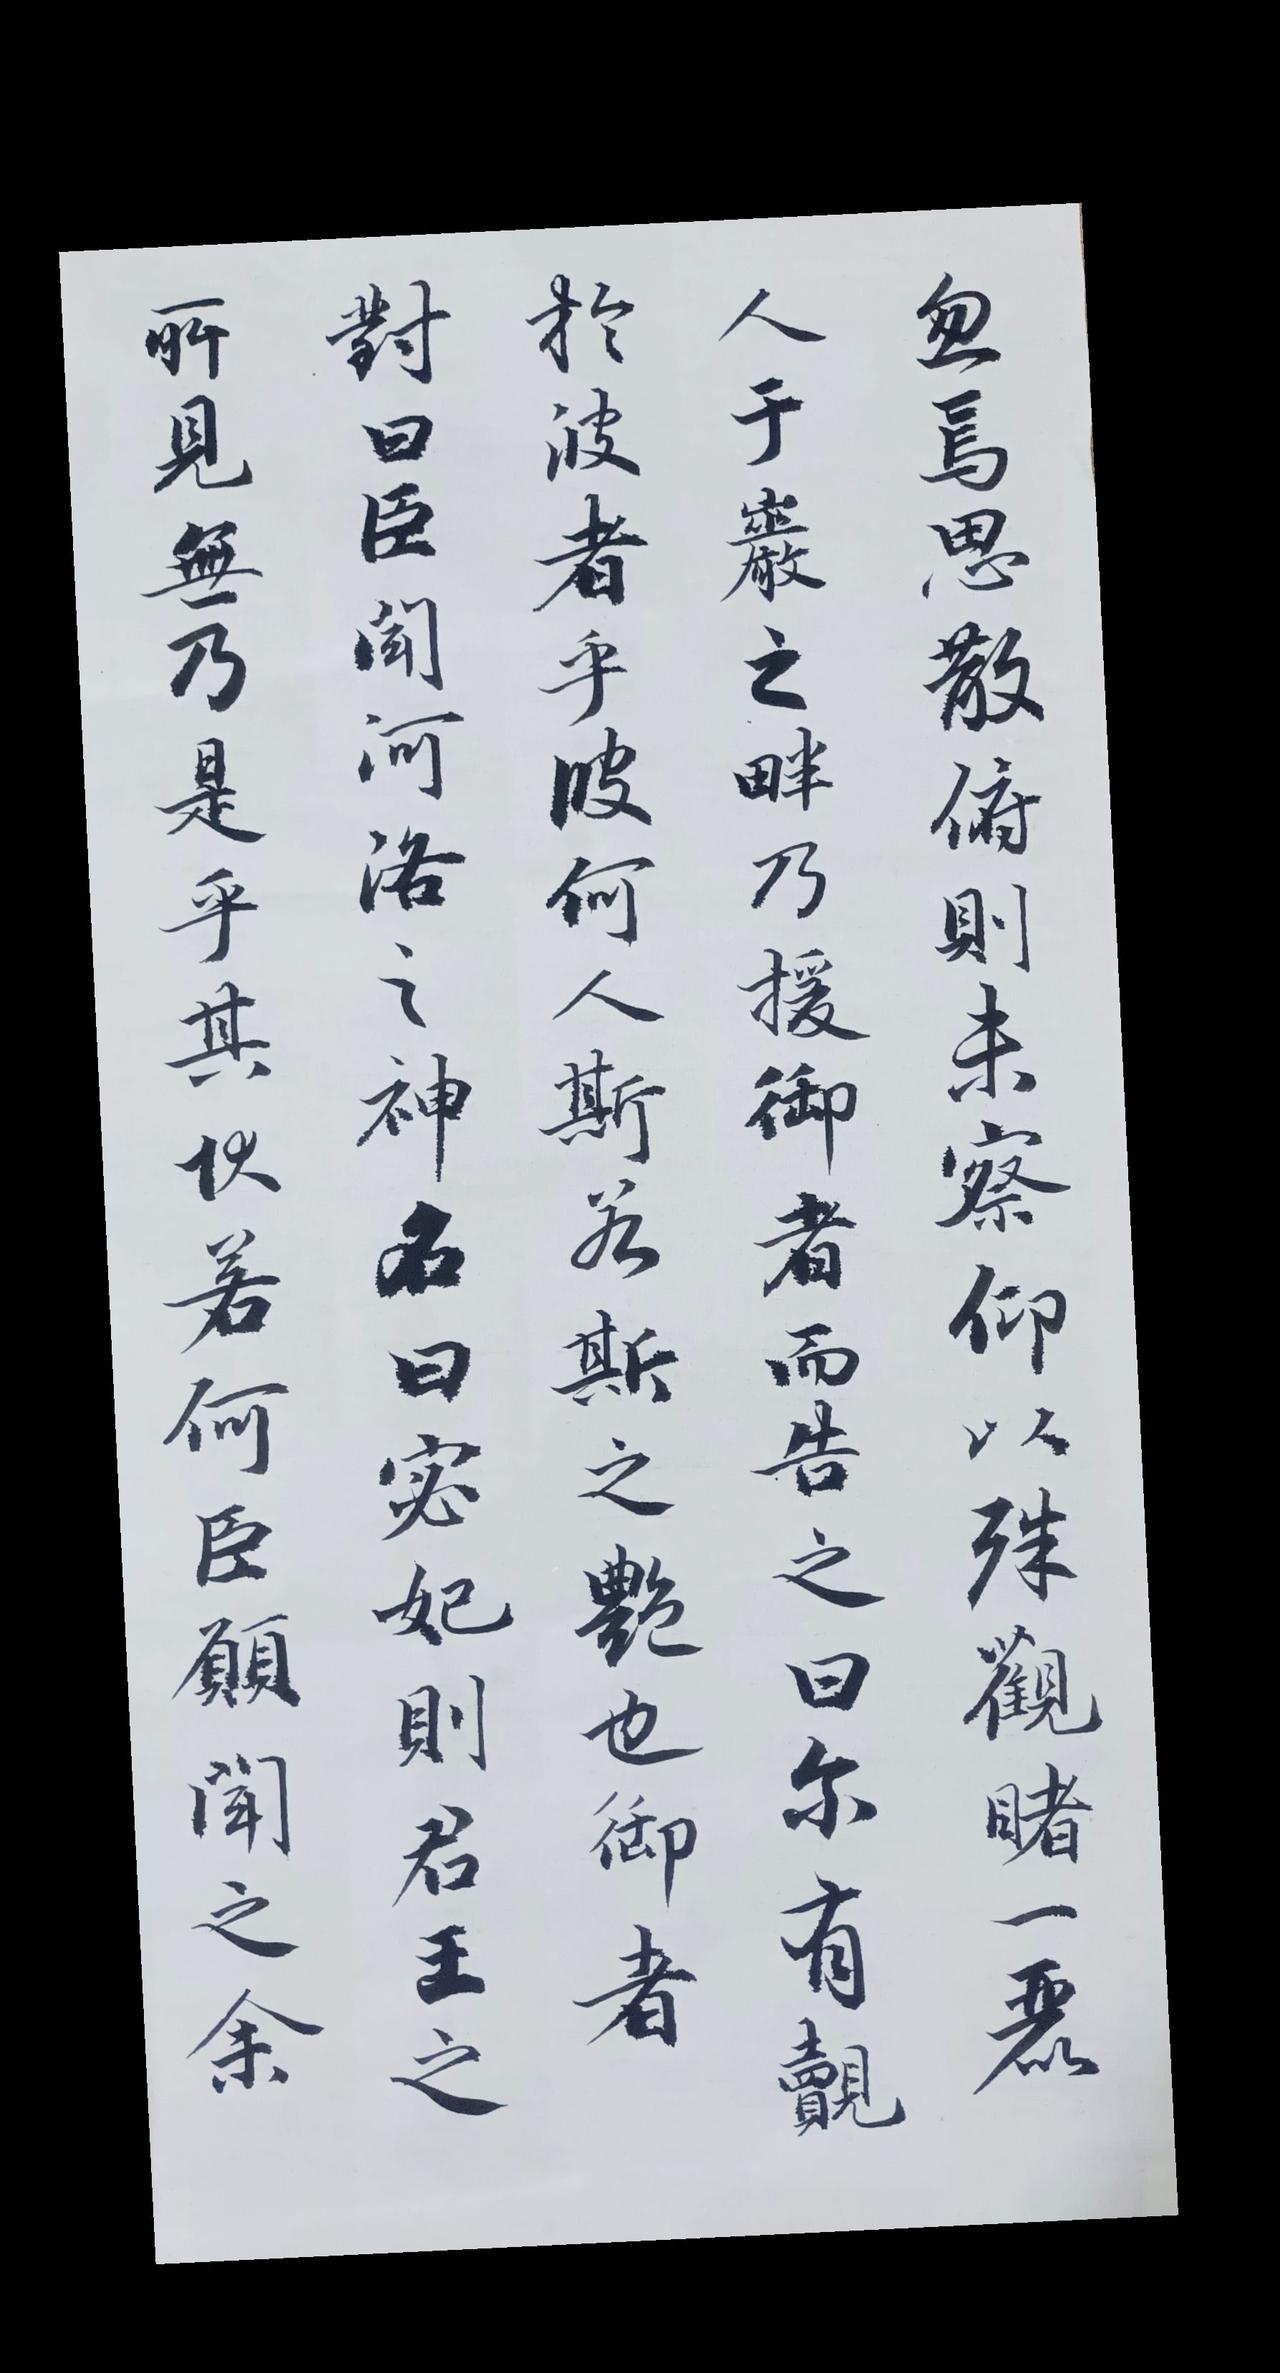 忽焉思散俯則未察仰以殊觀睹一麗
人于巖之畔乃援御者而告之曰尔有覿
於彼者乎彼何人斯若斯之艷也御者
對曰臣聞河洛之神名曰宓妃則君王之
所見無乃是乎其狀若何臣願聞之余